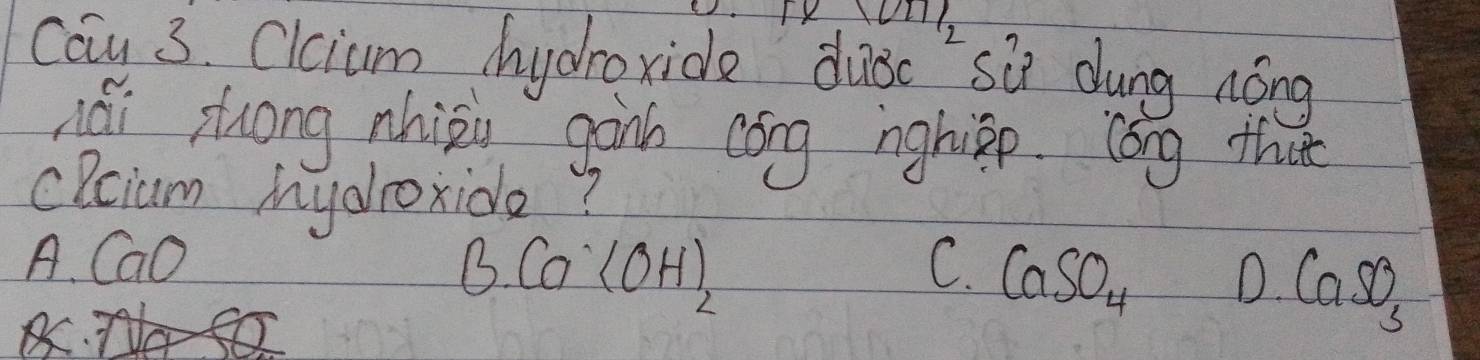 Câu 3. Clcium hydroxide được sử dụng rộng
rãi trong nhiều gành công nghiệp. Công thức
clcium hydroxide?
A. CaO B. Ca(OH)₂ C. CaSO₄ D. CaSO₃